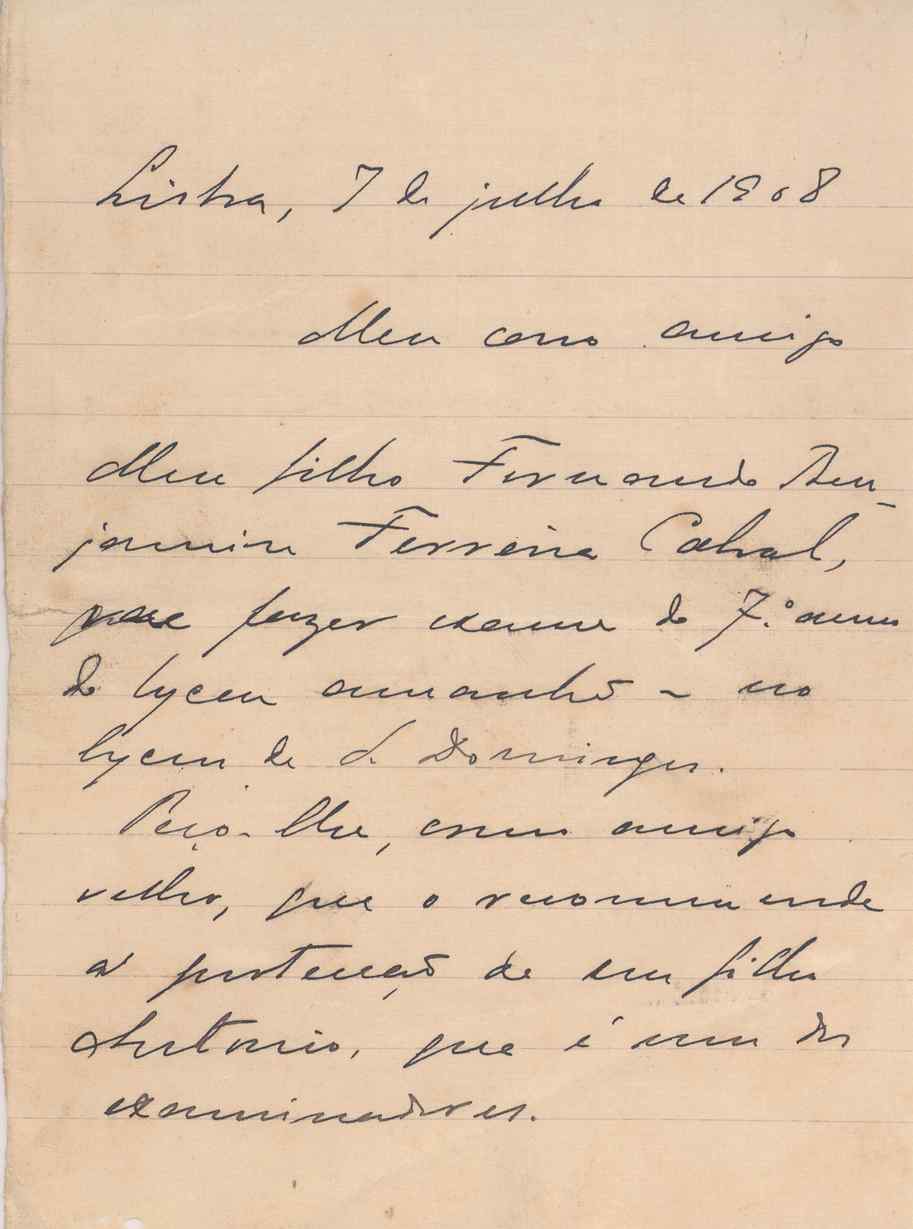 Lisboa, 7 de julho de 1908
Meu caro amigo
Meu filho Fernando Ben-
jamim Ferreira Cabral,
vae fazer exame do 7.º anno
do lyceu amanhã - no
lyceu de S. Domingos.
Peço-lhe, como amigo
velho, que o recommende
á protecção de seu filho
Antonio, que é um dos
examinadores.